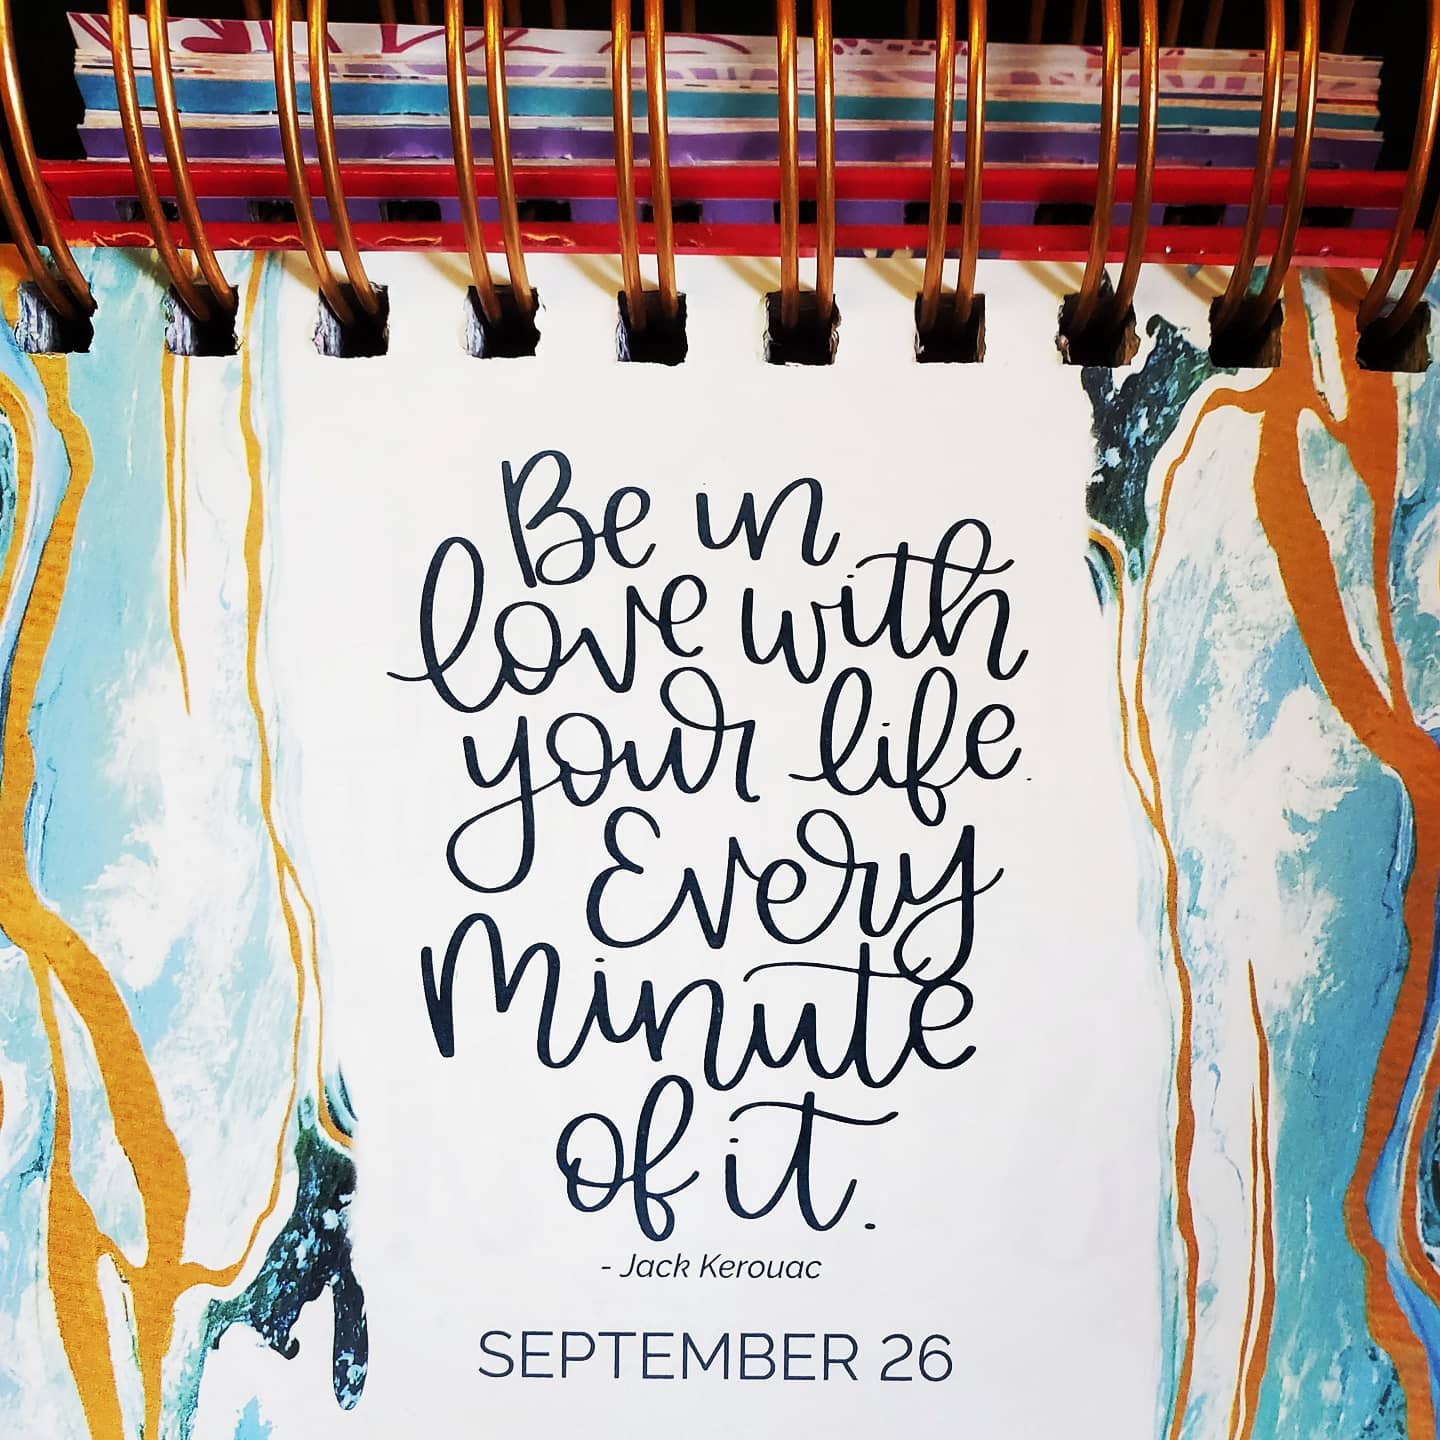 Be in
love with
your life.
Every
Minute
of it.
- Jack Kerouac
SEPTEMBER 26